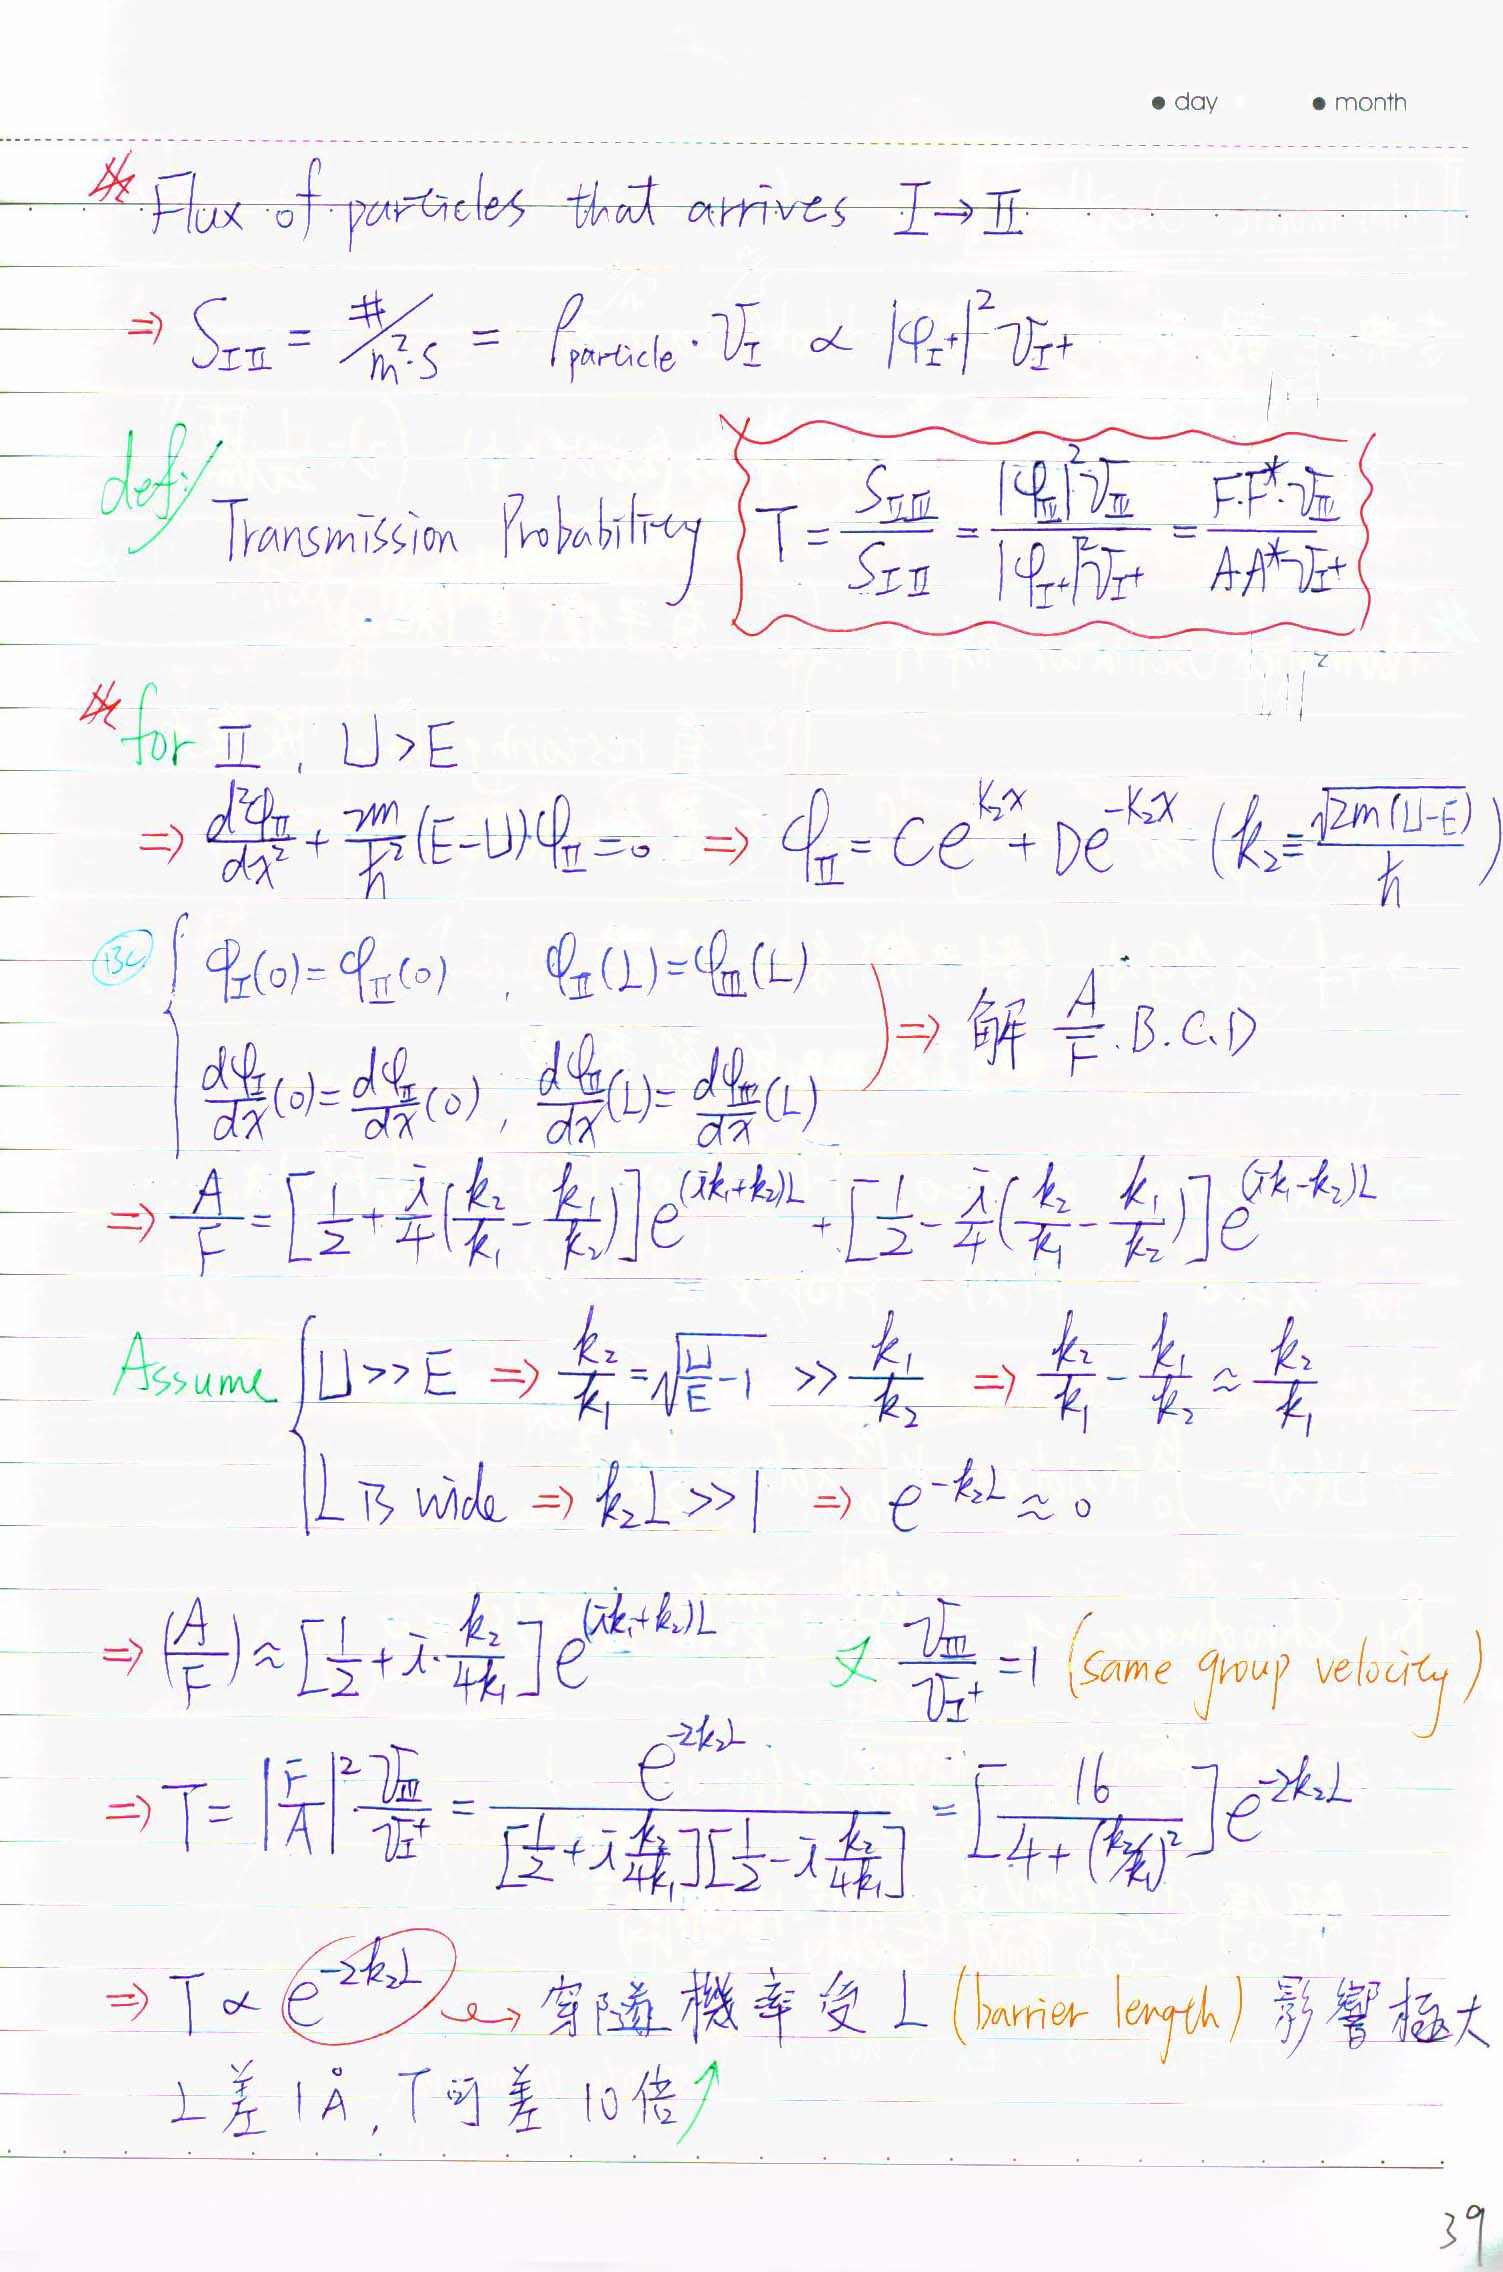 • day • month
※ Flux of particles that arrives I→II
⇒ S_I II = #/m²·s = ρ_particle · v_I ∝ |φ_I+|² v_I+
def:/ Transmission Probability T = S_II III / S_I II = |φ_III|² v_III / |φ_I+|² v_I+ = F·F*·v_III / A·A* v_I+
※ for II, U>E
⇒ d²φ_II/dx² + 2m/ħ² (E-U)·φ_II = 0 ⇒ φ_II = Ce^{k₂x} + De^{-k₂x} (k₂ ≡ √(2m(U-E))/ħ)
BC φ_I(0)=φ_II(0), φ_II(L)=φ_III(L)
dφ_I/dx(0)=dφ_II/dx(0), dφ_II/dx(L)=dφ_III/dx(L) ⇒ 解 A/F.B.C.D
⇒ A/F = [1/2 + i/4(k₂/k₁ - k₁/k₂)]e^{(ik₁+k₂)L} + [1/2 - i/4(k₂/k₁ - k₁/k₂)]e^{(ik₁-k₂)L}
Assume U>>E ⇒ k₂/k₁ = √(U/E - 1) >> k₁/k₂ ⇒ k₂/k₁ - k₁/k₂ ≈ k₂/k₁
L is wide ⇒ k₂L >> 1 ⇒ e^{-k₂L} ≈ 0
⇒ (A/F) ≈ [1/2 + i·k₂/4k₁]e^{(ik₁+k₂)L} 又 v_III/v_I+ = 1 (same group velocity)
⇒ T = |F/A|² v_III/v_I+ = e^{-2k₂L} / [1/2 + i k₂/4k₁][1/2 - i k₂/4k₁] = [16 / 4+(k₂/k₁)²]e^{-2k₂L}
⇒ T ∝ e^{-2k₂L} → 穿隧機率受 L (barrier length) 影響極大
L差1Å, T可差10倍↗
39